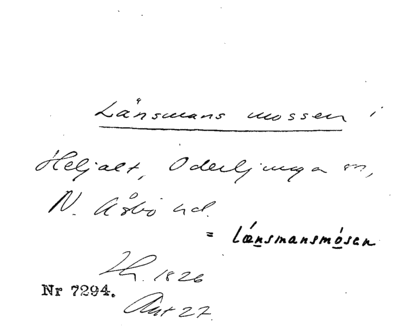 Länsmans mossen i
Heljalt, Oderljunga sn,
N. Åsbo hd.
= lænsmansmosen
Lh. 1826
Nr 7294.
Akt 27.